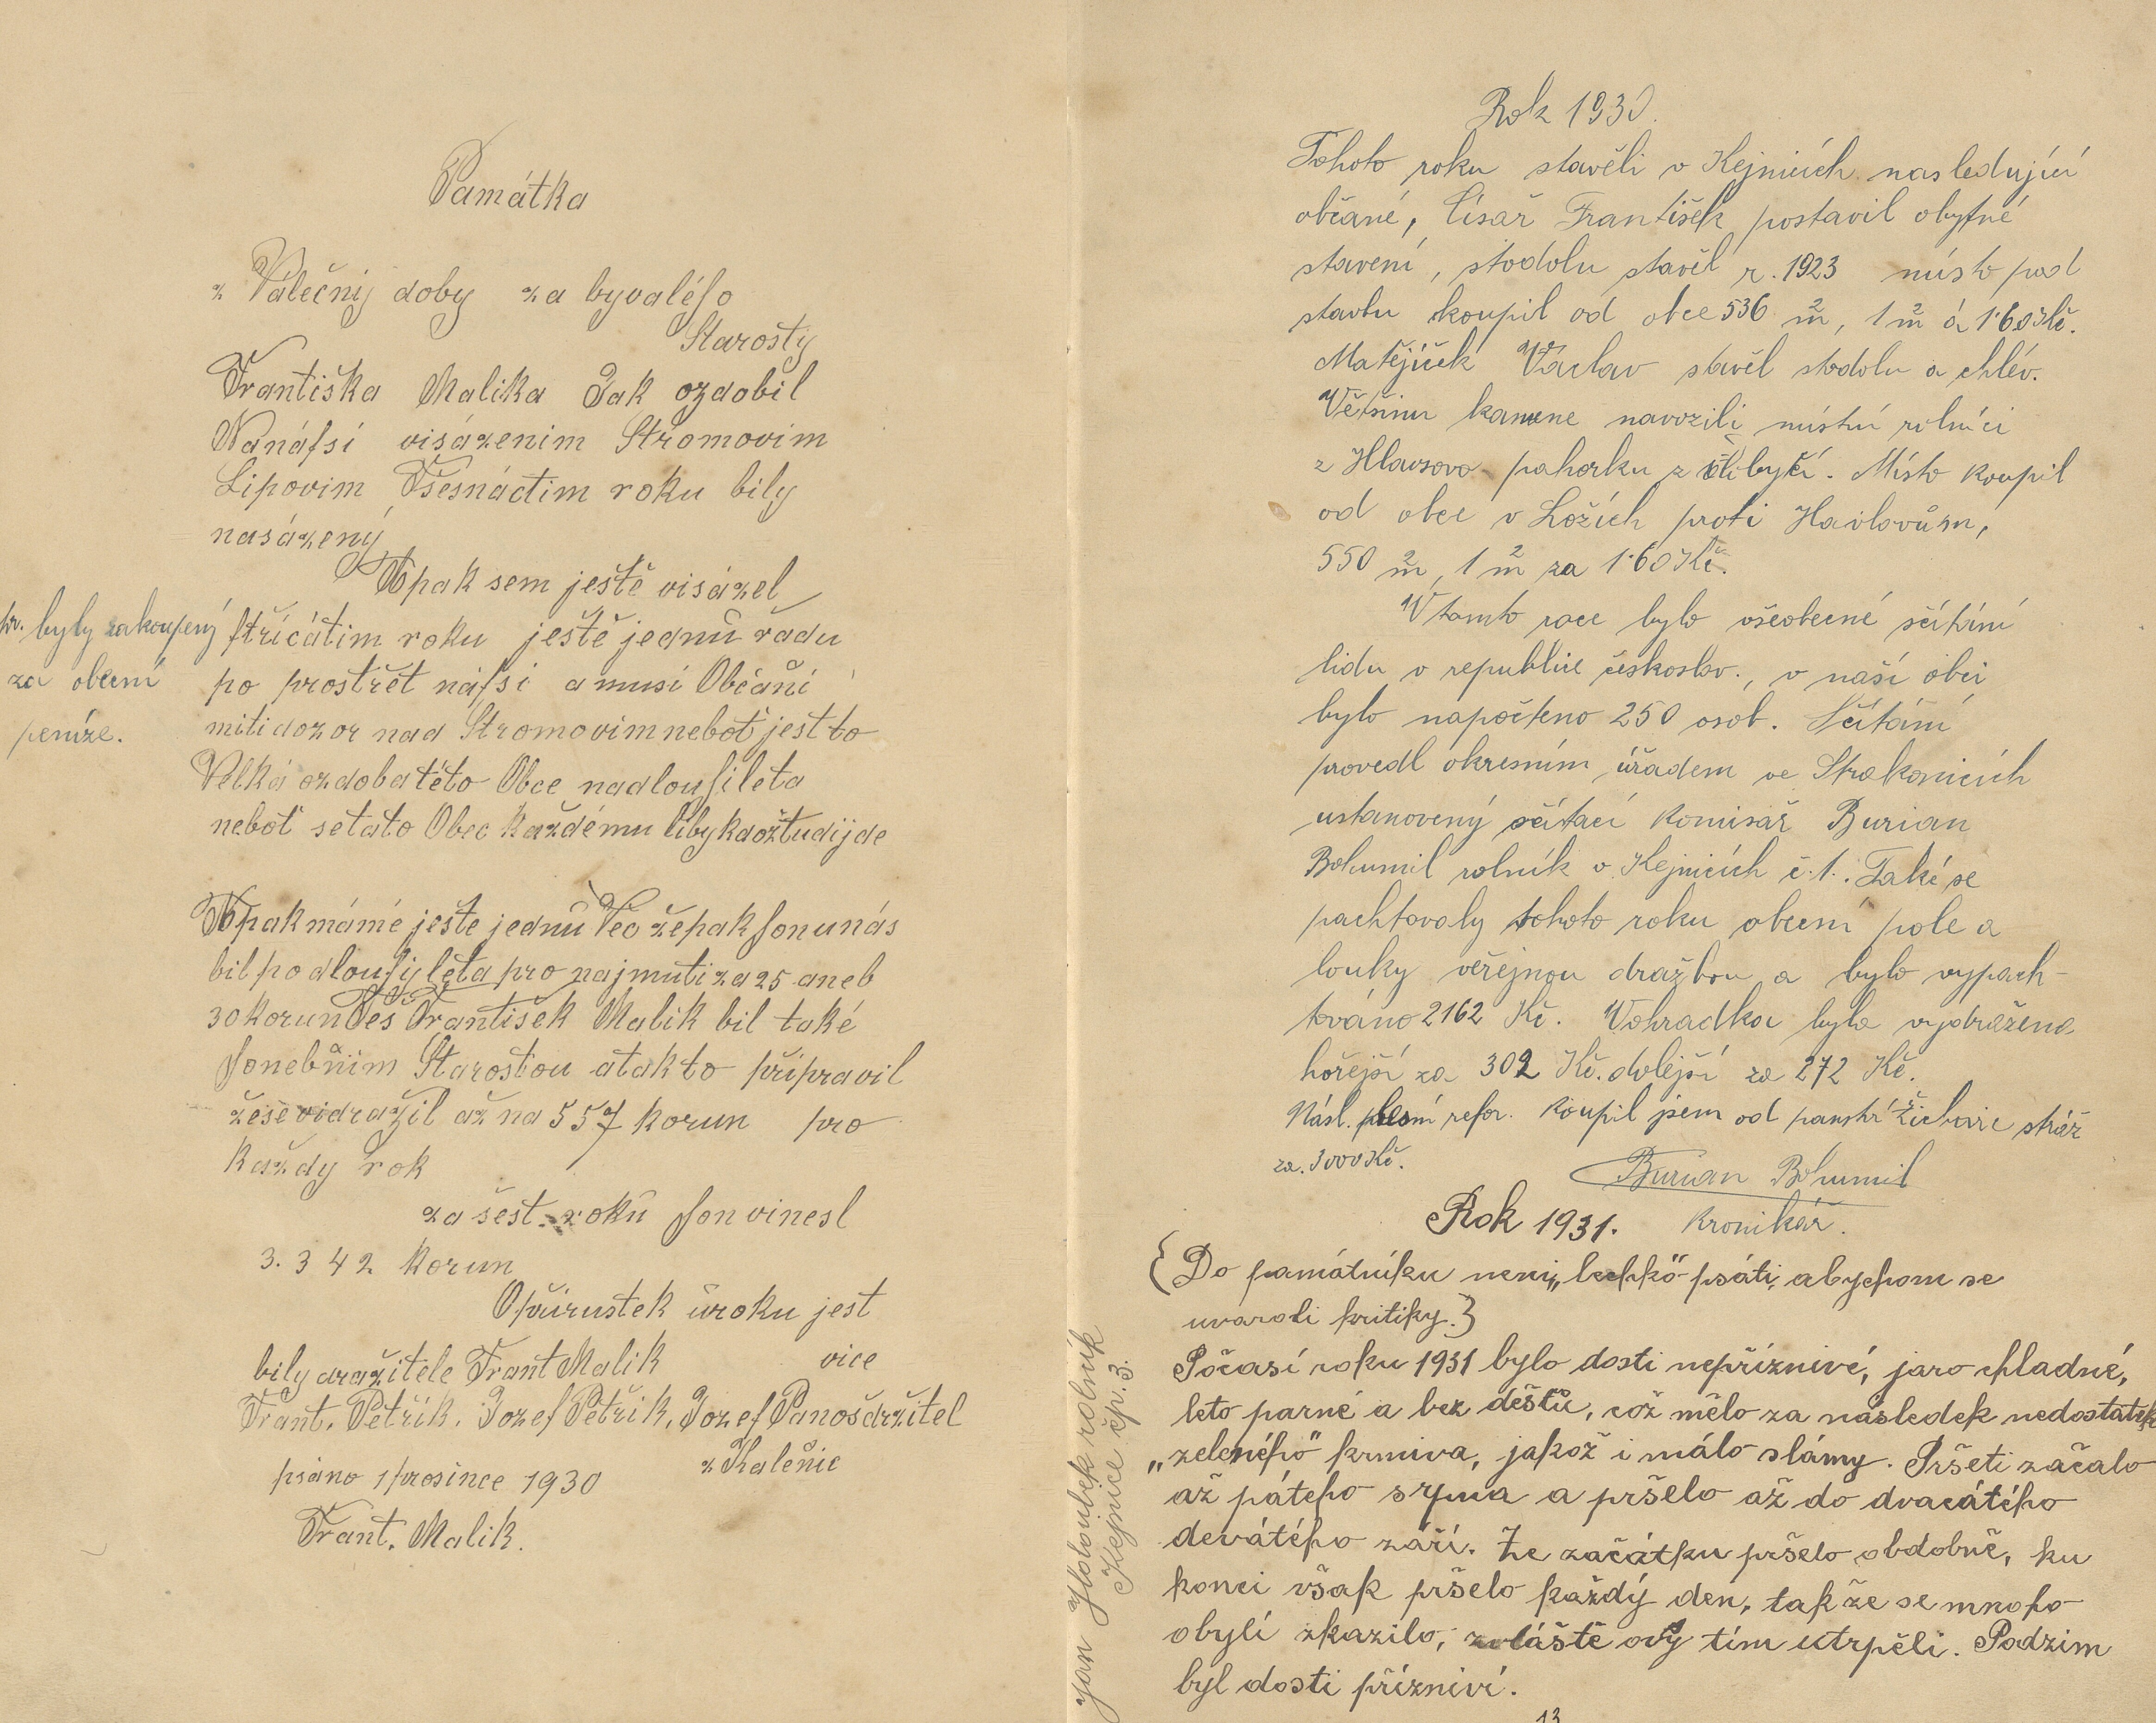 Památka
z Válečnij doby za byvalého
Starosty
Františka Malika Jak ozdobil
Nanáfsi visázenim Stromovim
Lipovim Tšesnáctim roku bily
nasázený
Apak sem ještě visázel
ftřicátim roku ještě jednů řadu
po prostřet náfsi a musi Občaňi
miti dozor nad Stromovim neboť jest to
Velká ozdoba této Obce nadlouhileta
neboť setato Obec každému líbykdožtudijde
br. byly zakoupený
za obecní
peníze.
Apak máme ješte jednů Vec žepak honunás
bil po dlouhij leta pro najmuti za 25 aneb
30 korun František Malik bil také
honebňim Starostou atakto připravil
žese vidražil až na 557 korun pro
každy rok
za šest roků hon vinesl
3.342 korun
Opřirustek ůroku jest
bily dražitele Frant Malik vice
Frant. Petřik, Jozef Petřik, Jozef Panoš držitel
z Kalenic
psáno 1 prosince 1930
Frant. Malik.
Rok 1930.
Tohoto roku stavěli v Kejnicích nasledující
občané, Císař František postavil obytné
stavení, stodolu stavěl r. 1923 místo pod
stavbu koupil od obce 536 m², 1 m² á 1·60 Kč.
Matějíček Václav stavěl stodolu a chlév.
Většinu kamene navozili místní rolníci
z Hlavsovo pahorku z . Místo koupil
od obce v Ložích proti Havlovům,
550 m², 1 m² za 1·60 Kč.
V tomto roce bylo všeobecné sčítání
lidu v republice českoslov., v naší obci
bylo napočteno 250 osob. Sčítání
provedl okresním úřadem ve Strakonicích
ustanovený sčítací komisař Burian
Bohumil rolník v Kejnicích č. 1. Také se
pachtovaly tohoto roku obecní pole a
louky veřejnou dražbou a bylo vypach-
továno 2162 Kč. Vohradka byla vydražena
hořejší za 302 Kč. dolejší za 272 Kč.
Násl. refor. koupil jsem od panství Žichovic
za 3000 Kč.
Burian Bohumil
kronikář.
Rok 1931.
{Do památníku neni „lechkö" psáti, abychom se
uvarovali kritiky.}
Počasí roku 1931 bylo dosti nepříznivé, jaro chladné,
leto parné a bez deště, což mělo za následek nedostatek
„zeleného" krmiva, jakož i málo slámy. Pršeti začalo
až pátého srpna a pršelo až do dvacátého
devátého září. Ze začátku pršelo obdobně, ku
konci však pršelo každý den, tak že se mnoho
obylí zkazilo, zvláště ovsy tím utrpěli. Podzim
byl dosti přízniví.
Jan Holoubek rolník
Kejnice čp. 3.
13